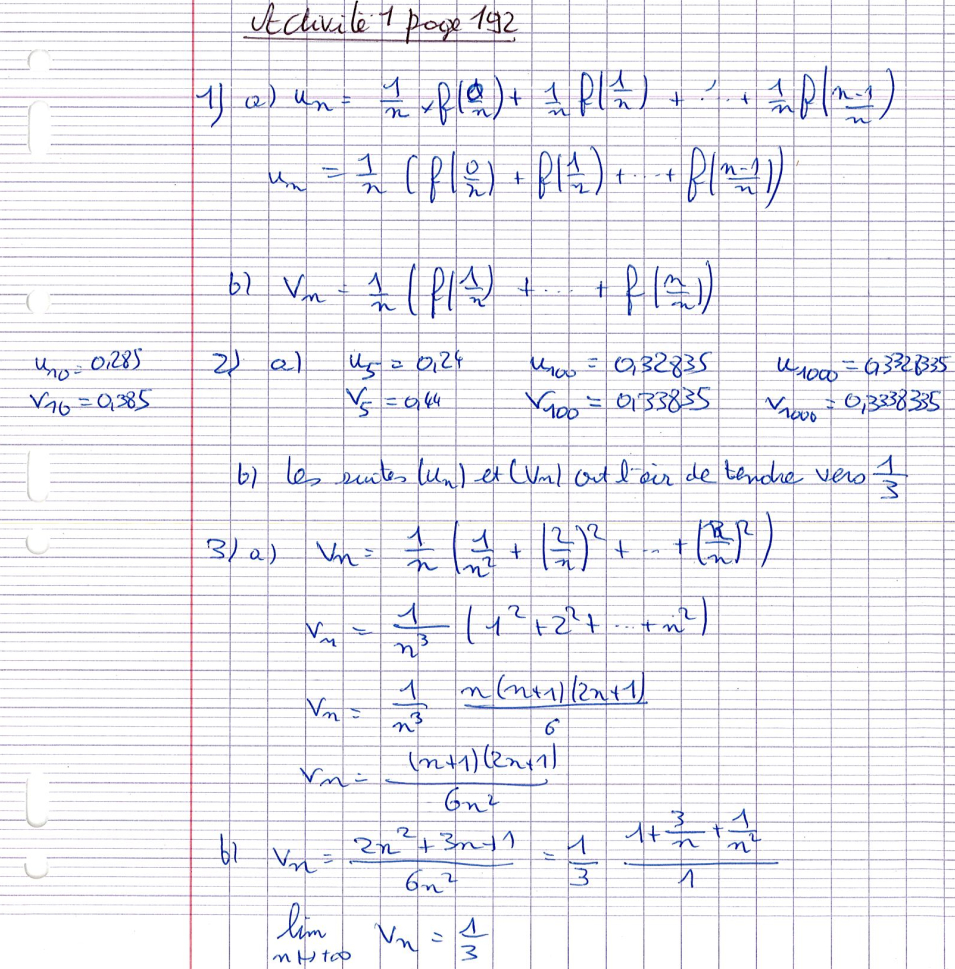 Activité 1 page 192
1) a) u_n = 1/n × f(0/n) + 1/n f(1/n) + ... + 1/n f(n-1/n)
u_n = 1/n (f(0/n) + f(1/n) + ... + f(n-1/n))
b) V_n = 1/n (f(1/n) + ... + f(n/n))
u_10 = 0,285 2) a) u_5 = 0,24 u_100 = 0,32835 u_1000 = 0,3328335
V_10 = 0,385 V_5 = 0,44 V_100 = 0,33835 V_1000 = 0,3338335
b) les suites (u_n) et (V_n) ont l'air de tendre vers 1/3
3) a) V_n = 1/n (1/n² + (2/n)² + ... + (n/n)²)
V_n = 1/n³ (1² + 2² + ... + n²)
V_n = 1/n³ n(n+1)(2n+1)/6
V_n = (n+1)(2n+1)/6n²
b) V_n = 2n² + 3n + 1/6n² = 1/3 1 + 3/n + 1/n²/1
lim n→+∞ V_n = 1/3